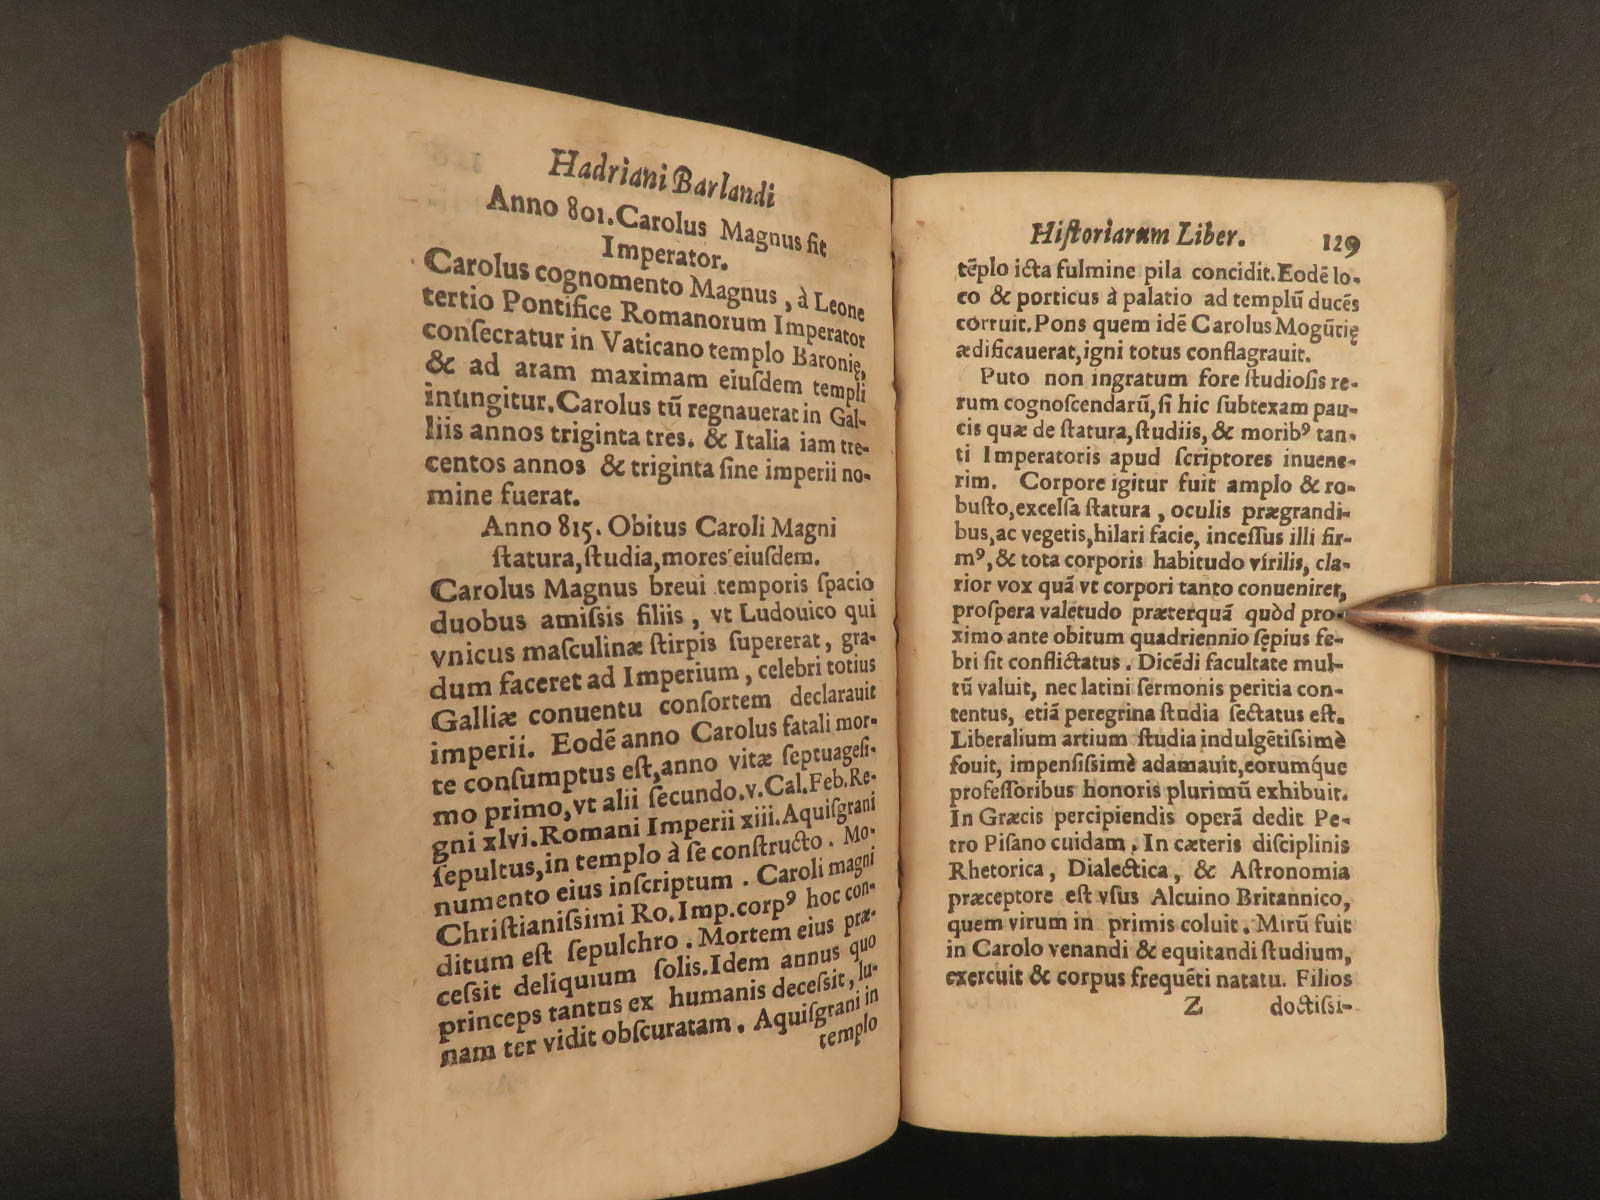 Hadriani Barlandi
Anno 801. Carolus Magnus fit
Imperator.
Carolus cognomento Magnus, à Leone
tertio Pontifice Romanorum Imperator
conſecratur in Vaticano templo Baronię,
& ad aram maximam eiuſdem templi
inungitur. Carolus tū regnauerat in Gal-
liis annos triginta tres. & Italia iam tre-
centos annos & triginta ſine imperii no-
mine fuerat.
Anno 815. Obitus Caroli Magni
ſtatura, ſtudia, mores eiuſdem.
Carolus Magnus breui temporis ſpacio
duobus amiſsis filiis, vt Ludouico qui
vnicus maſculinæ ſtirpis ſupererat, gra-
dum faceret ad Imperium, celebri totius
Galliæ conuentu conſortem declarauit
imperii. Eodē anno Carolus fatali mor-
te conſumptus eſt, anno vitæ ſeptuageſi-
mo primo, vt alii ſecundo. v. Cal. Feb. Re-
gni xlvi. Romani Imperii xiii. Aquiſgrani
ſepultus, in templo à ſe conſtructo. Mo-
numento eius inſcriptum. Caroli magni
Chriſtianiſsimi Ro. Imp. corpꝰ hoc con-
ditum eſt ſepulchro. Mortem eius præ-
ceſsit deliquium ſolis. Idem annus quo
princeps tantus ex humanis deceſsit, lu-
nam ter vidit obſcuratam. Aquiſgrani in
templo
Hiſtoriarum Liber. 129
tēplo icta fulmine pila concidit. Eodē lo-
co & porticus à palatio ad templū ducēs
corruit. Pons quem idē Carolus Mogūtię
ædificauerat, igni totus conflagrauit.
Puto non ingratum fore ſtudioſis re-
rum cognoſcendarū, ſi hic ſubtexam pau-
cis quæ de ſtatura, ſtudiis, & moribꝰ tan-
ti Imperatoris apud ſcriptores inuene-
rim. Corpore igitur fuit amplo & ro-
buſto, excelſa ſtatura, oculis prægrandi-
bus, ac vegetis, hilari facie, inceſſus illi fir-
mꝰ, & tota corporis habitudo virilis, cla-
rior vox quā vt corpori tanto conueniret,
proſpera valetudo præterquā quòd pro-
ximo ante obitum quadriennio ſępius fe-
bri ſit conflictatus. Dicēdi facultate mul-
tū valuit, nec latini ſermonis peritia con-
tentus, etiā peregrina ſtudia ſectatus eſt.
Liberalium artium ſtudia indulgētiſsimè
fouit, impenſiſsimè adamauit, eorumque
profeſſoribus honoris plurimū exhibuit.
In Græcis percipiendis operā dedit Pe-
tro Piſano cuidam. In cæteris diſciplinis
Rhetorica, Dialectica, & Aſtronomia
præceptore eſt vſus Alcuino Britannico,
quem virum in primis coluit. Mirū fuit
in Carolo venandi & equitandi ſtudium,
exercuit & corpus frequēti natatu. Filios
Z doctiſsi-